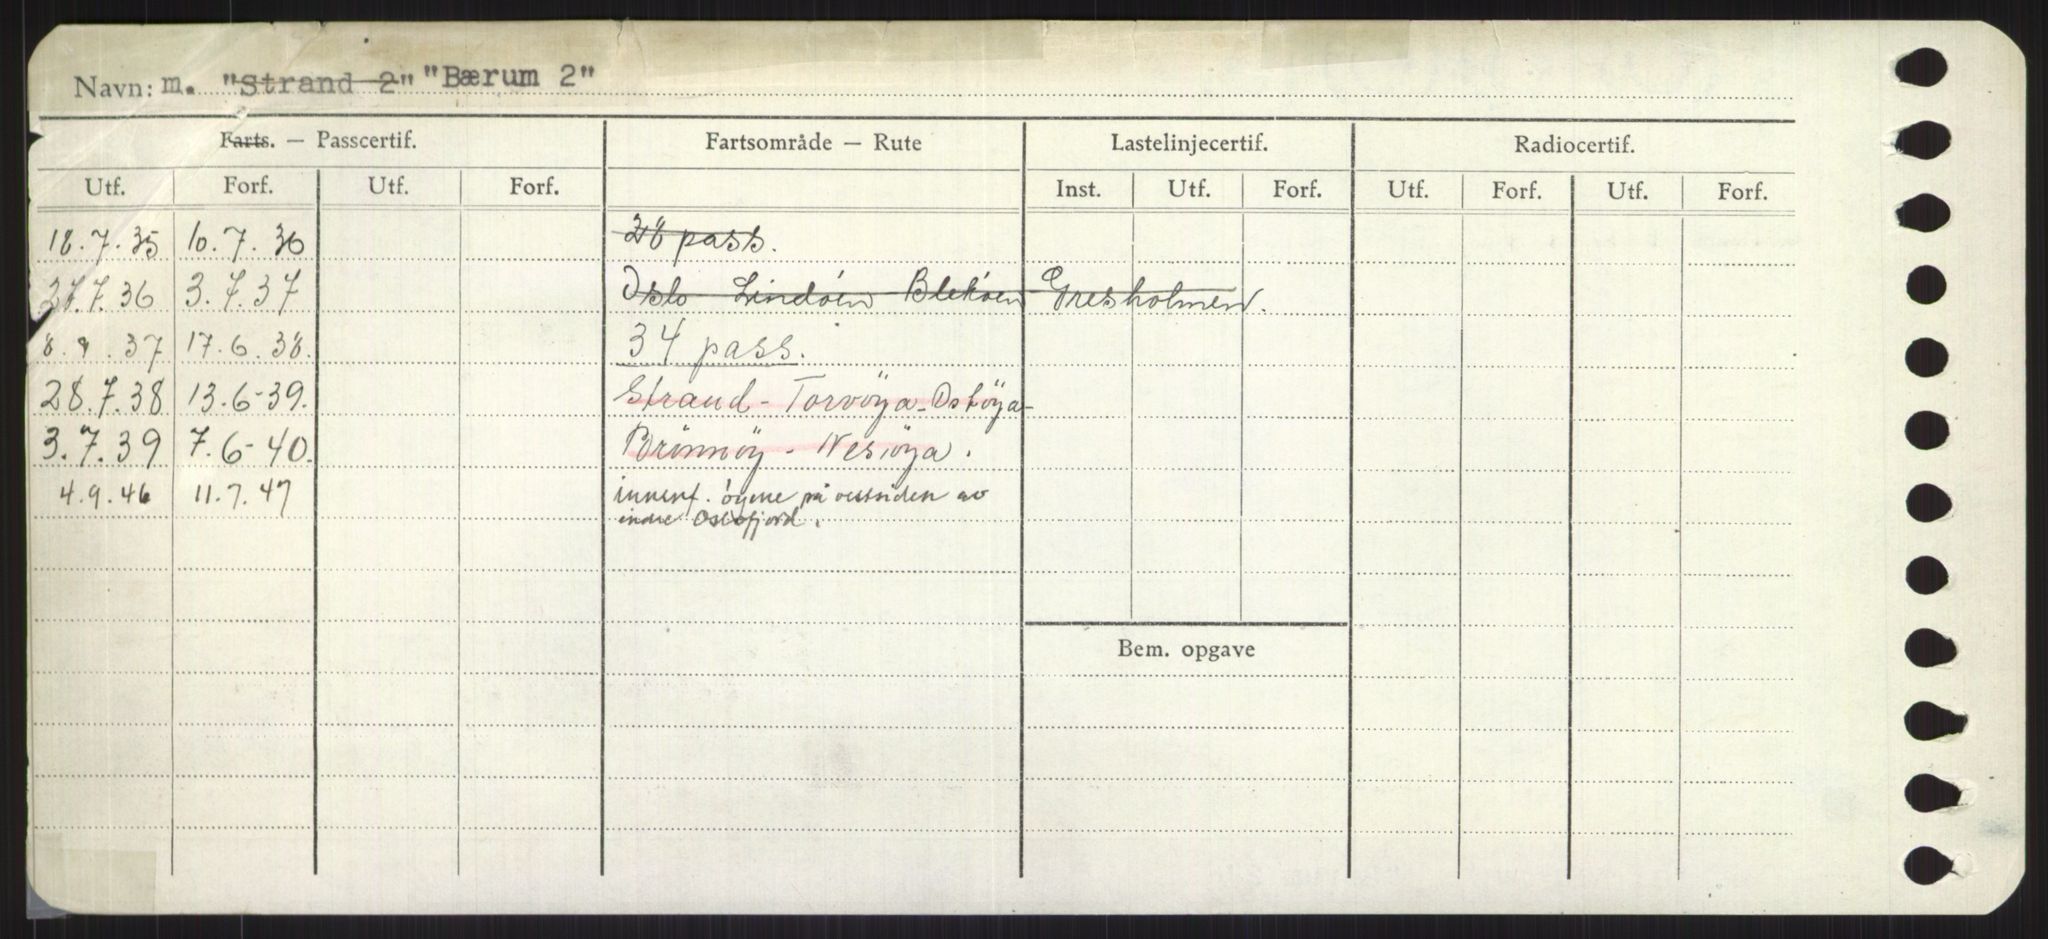 Navn: m. "Strand 2" "Bærum 2"
Farts. — Passcertif. Fartsområde — Rute Lastelinjecertif. Radiocertif.
Utf. Forf. Utf. Forf. Inst. Utf. Forf. Utf. Forf. Utf. Forf.
18.7.35 10.7.36 28 pass.
27.7.36 3.7.37 Oslo Lindöen Beköen Gresholmen.
8.9.37 17.6.38. 34 pass.
28.7.38 13.6-39. Strand - Torvöya - Ostöya -
3.7.39 7.6-40. Brönnöy - Nesöya.
4.9.46 11.7.47 innenf. öyene på vestsiden av
indre Oslofjord.
Bem. opgave